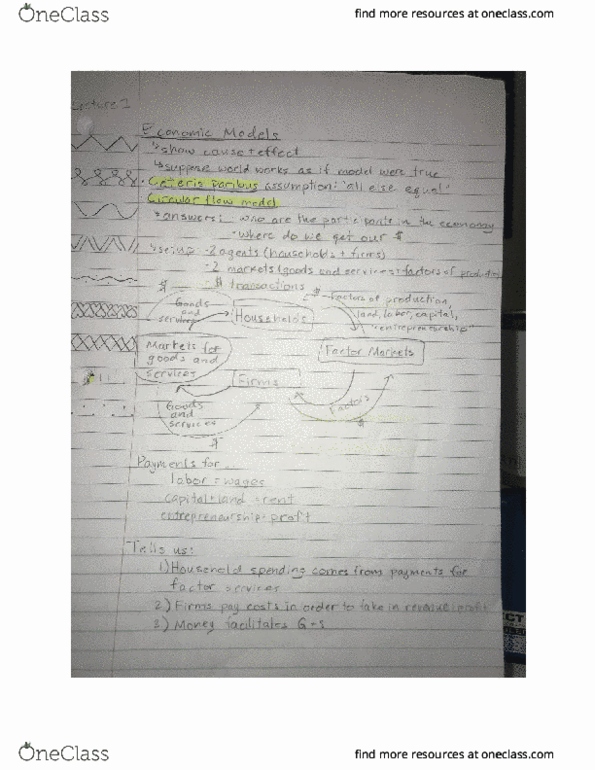 OneClass
find more resources at oneclass.com
Lecture 1
Economic Models
↳show cause + effect
↳suppose world works as if model were true
Ceteris paribus assumption: "all else equal"
Circular flow model
answers: who are the participants in the economy
• where do we get our $
↳setup - 2 agents (households + firms)
- 2 markets (goods and services + factors of production)
- $ transactions
$
Goods
and
services
Households
$
Factors of production,
land, labor, capital,
"entrepreneurship"
Markets for
goods and
services
Factor Markets
Firms
Goods
and
services
$
Factors
$
Payments for
labor = wages
capital + land = rent
entrepreneurship = profit
Tells us:
1) Household spending comes from payments for
factor services
2) Firms pay costs in order to take in revenue/profit
3) Money facilitates G + S
OneClass
find more resources at oneclass.com